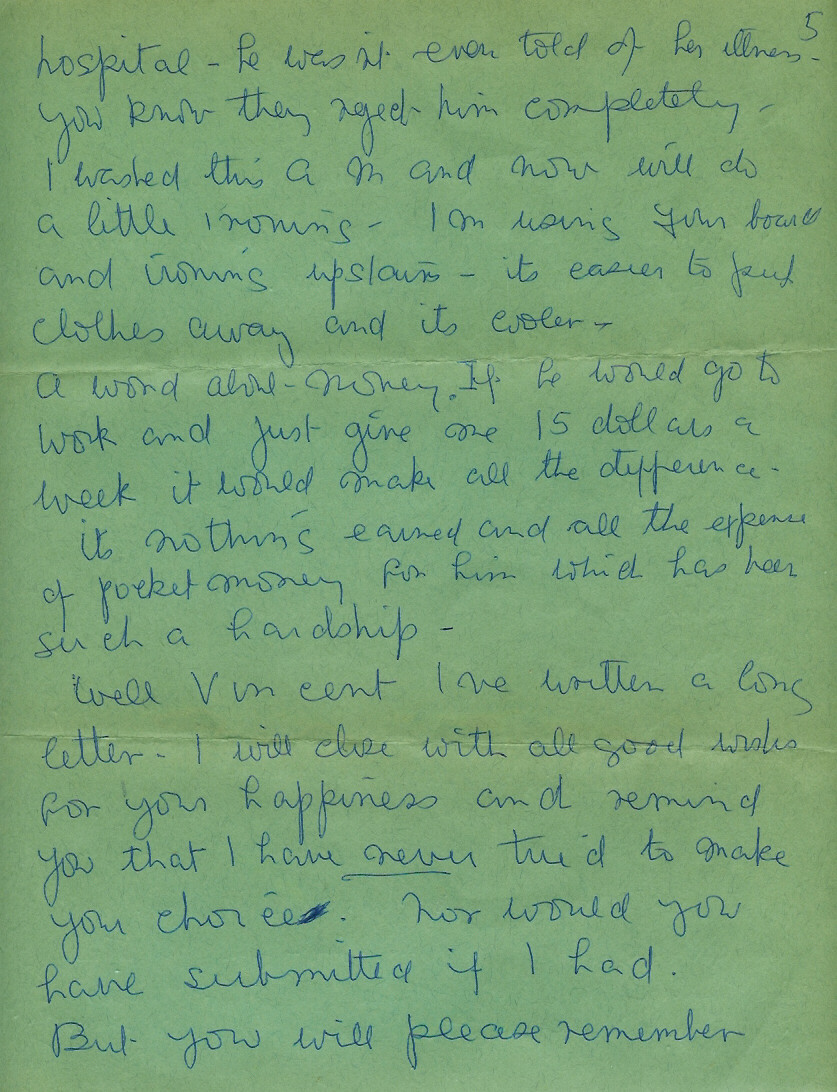 5
hospital - he wasn't even told of her illness -
you know they aged him completely -
I washed this A M and now will do
a little ironing - I'm using your board
and ironing upstairs - its easier to put
clothes away and its cooler -
A word about - money. If he would go to
work and just give me 15 dollars a
week it would make all the difference -
its nothing earned and all the expense
of pocket money for him which has been
such a hardship -
Well Vincent I've written a long
letter - I will close with all good wishes
for your happiness and remind
you that I have never tried to make
your choice. Nor would you
have submitted if I had.
But you will please remember